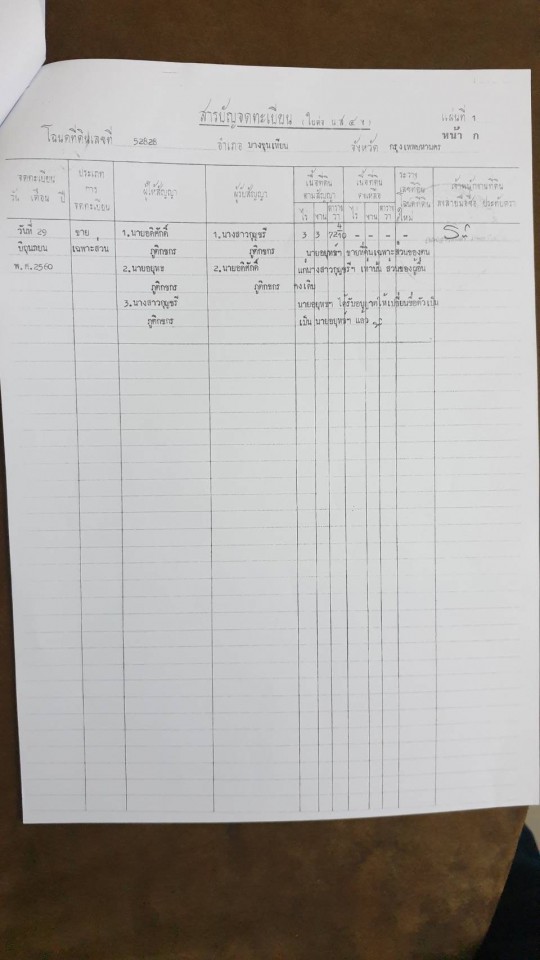 สารบัญจดทะเบียน (ใบต่อ น.ส.๔ จ.)
แผ่นที่ 1
หน้า ก
โฉนดที่ดินเลขที่ 52828 อำเภอ บางขุนเทียน จังหวัด กรุงเทพมหานคร
จดทะเบียน
วัน เดือน ปี
ประเภท
การ
จดทะเบียน
ผู้ให้สัญญา
ผู้รับสัญญา
เนื้อที่ดิน
ตามสัญญา
ไร่ งาน ตาราง
วา
เนื้อที่ดิน
คงเหลือ
ไร่ งาน ตาราง
วา
ระวาง
เลขที่ดิน
โฉนดที่ดิน
ใหม่
เจ้าพนักงานที่ดิน
ลงลายมือชื่อ ประทับตรา
วันที่ 29 ขาย 1.นายอดิศักดิ์ 1.นางสาวกุญชรี 3 3 - - - -
มิถุนายน เฉพาะส่วน ภูติกขกร ภูติกขกร นายอยุทธ์ฯ ขายที่ดินเฉพาะส่วนของตน
พ.ศ.2560 2.นายอยุทธ 2.นายอดิศักดิ์ แก่นางสาวกุญชรีฯ เท่านั้น ส่วนของผู้อื่น
ภูติกขกร ภูติกขกร คงเดิม
3.นางสาวกุญชรี นายอยุทธฯ ได้รับอนุญาตให้เปลี่ยนชื่อตัวเป็น
ภูติกขกร เป็น นายอยุทธ์ฯ แล้ว